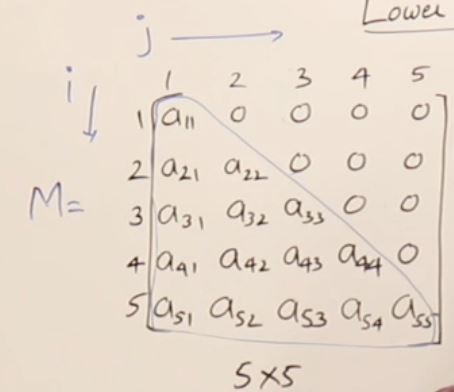 Lower
j
1 2 3 4 5
i
1 a11 0 0 0 0
2 a21 a22 0 0 0
M= 3 a31 a32 a33 0 0
4 a41 a42 a43 a44 0
5 a51 a52 a53 a54 a55
5×5